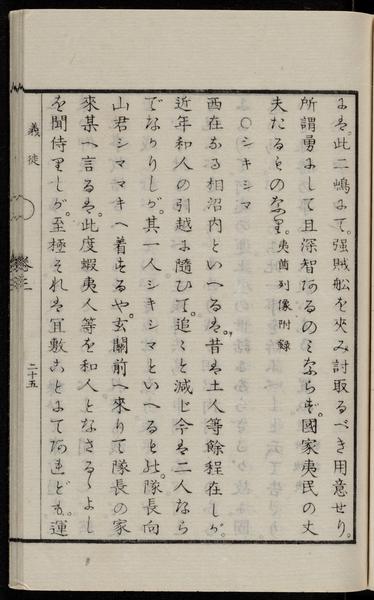 よは。此二嶋よて。强賊舩を夾み討取るべき用意せり。
所謂勇よして且深智あるのミならず。國家夷民の丈
夫たるものなり。夷酋列像附録
○シキシマ
西在なる相沼内といへるは。昔は土人等餘程在しが。
近年和人の引越に隨ひて。追々と減じ今は二人なら
でなかりしが。其一人シキシマといへるもの。隊長向
山君シママキへ着するや。玄關前へ來りて隊長の家
來某へ言るは。此度蝦夷人等を和人となさるゝよし
を聞侍りしが。至極それは宜敷ことよてあれども。運
義徒
卷三
二十五